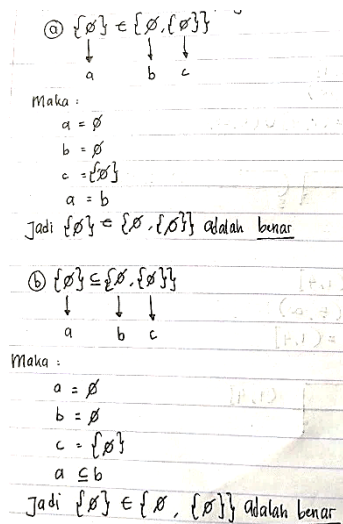 ⓐ {∅} ∈ {∅, {∅}}
↓ ↓ ↓
a b c
Maka :
a = ∅
b = ∅
c = {∅}
a = b
Jadi {∅} ∈ {∅, {∅}} adalah benar
ⓑ {∅} ⊆ {∅, {∅}}
↓ ↓ ↓
a b c
Maka :
a = ∅
b = ∅
c = {∅}
a ⊆ b
Jadi {∅} ∈ {∅, {∅}} adalah benar